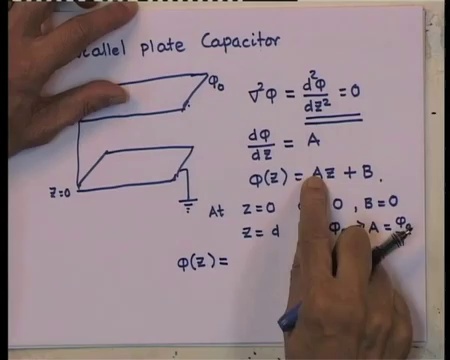 allel plate Capacitor
φ₀
∇²φ = d²φ/dz² = 0
dφ/dz = A
φ(z) = Az + B.
z=0
At z=0 0, B=0
z=d A = φ₀
φ(z) =